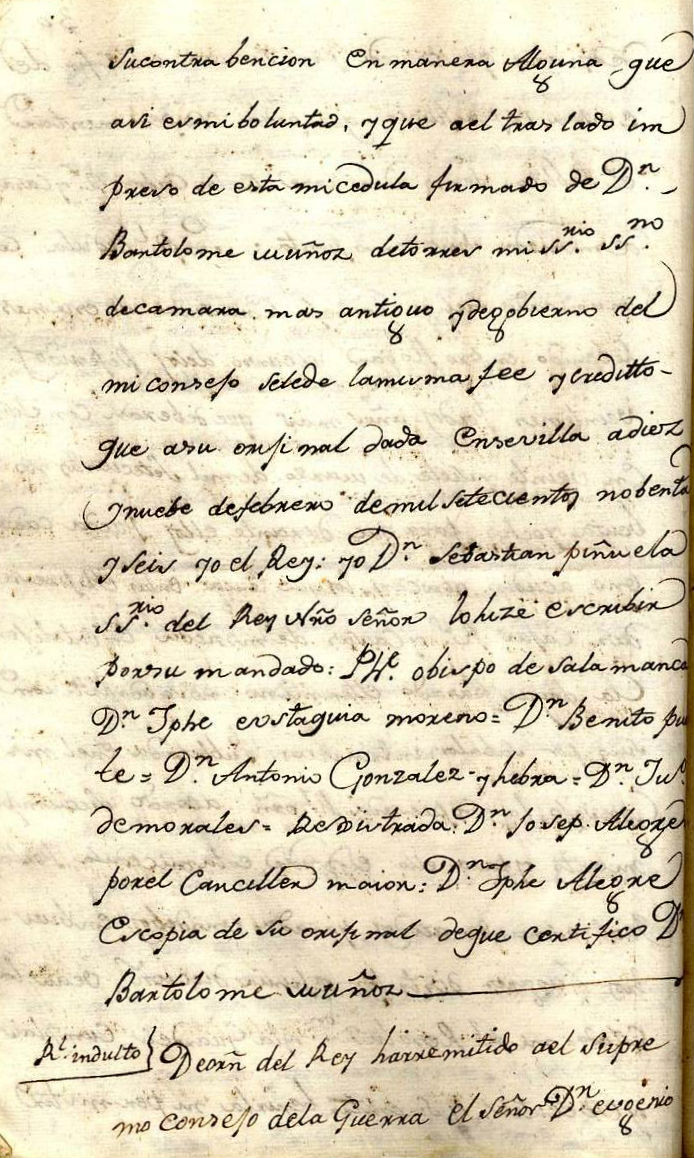 sucontra bencion en manera Alguna que
asi es mi boluntad, y que ael tras lado im
preso de esta mi cedula firmado de Dn.
Bartolome Muñoz de torres mi ssrio. ssno.
de camara mas antiguo y de gobierno del
mi consejo selede la misma fee y creditto
que asu orijinal dada en sevilla a diez
y nuebe de febrero de mil setecientos nobenta
y seis yo el Rey: yo Dn. Sebastian piñuela
ssrio. del Rey Nrõ señor lo hize escribir
por su mandado: Phe. obispo de salamanca
Dn Jphe eustaguia moreno= Dn Benito pu
te= Dn. Antonio Gonzalez yhebra= Dn. Jun.
de morales= Rejistrada: Dn. Josep. Alegre
por el Canciller maior: Dn. Jphe Alegre
Es copia de su orijinal de que certifico Dn
Bartolome Muñoz
Rl. indulto} De orñ del Rey harremitido ael supre
mo consejo dela Guerra el señor Dn. eugenio